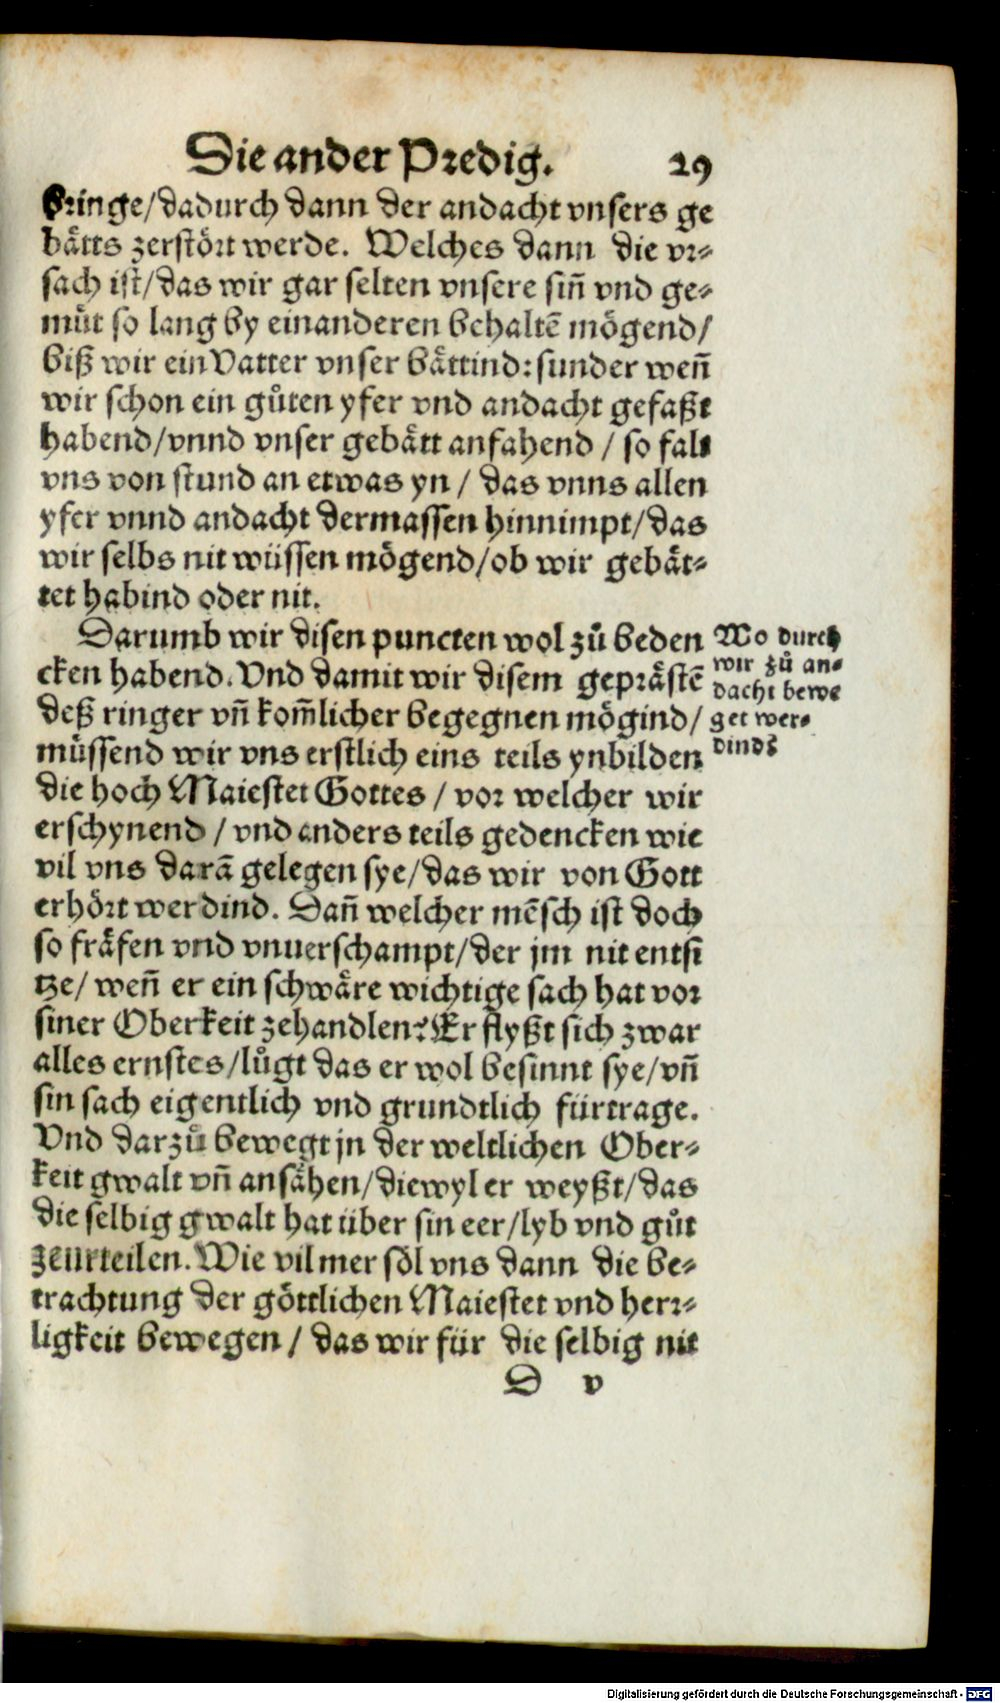 Die ander Predig. 29
bringe/dadurch dann der andacht vnsers ge
bätts zerstört werde. Welches dann die vr⸗
sach ist/das wir gar selten vnsere sin̄ vnd ge⸗
müt so lang by einanderen behaltē mögend/
biß wir ein Vatter vnser bättind: sunder wen̄
wir schon ein gůten yfer vnd andacht gefaßt
habend/vnnd vnser gebätt anfahend / so falt
vns von stund an etwas yn / das vnns allen
yfer vnnd andacht dermassen hinnimpt/das
wir selbs nit wüssen mögend/ob wir gebät⸗
tet habind oder nit.
Darumb wir disen puncten wol zů beden
cken habend. Vnd damit wir disem geprästē
deß ringer vn̄ kom̄licher begegnen mögind/
müssend wir vns erstlich eins teils ynbilden
die hoch Maiestet Gottes / vor welcher wir
erschynend / vnd anders teils gedencken wie
vil vns darā gelegen sye/das wir von Gott
erhört werdind. Dan̄ welcher mēsch ist doch
so fräfen vnd vnuerschampt/der jm nit entsi
tze/ wen̄ er ein schwäre wichtige sach hat vor
siner Oberkeit zehandlen? Er flyßt sich zwar
alles ernstes/lůgt das er wol besinnt sye/vn̄
sin sach eigentlich vnd grundtlich fürtrage.
Vnd darzů bewegt jn der weltlichen Ober⸗
keit gwalt vn̄ ansähen/diewyl er weyßt/das
die selbig gwalt hat über sin eer/lyb vnd gůt
zeurteilen. Wie vil mer söl vns dann die be⸗
trachtung der göttlichen Maiestet vnd herr⸗
ligkeit bewegen / das wir für die selbig nit
D v
Wo durch
wir zů an⸗
dacht bewe
get wer⸗
dind?
Digitalisierung gefördert durch die Deutsche Forschungsgemeinschaft - DFG